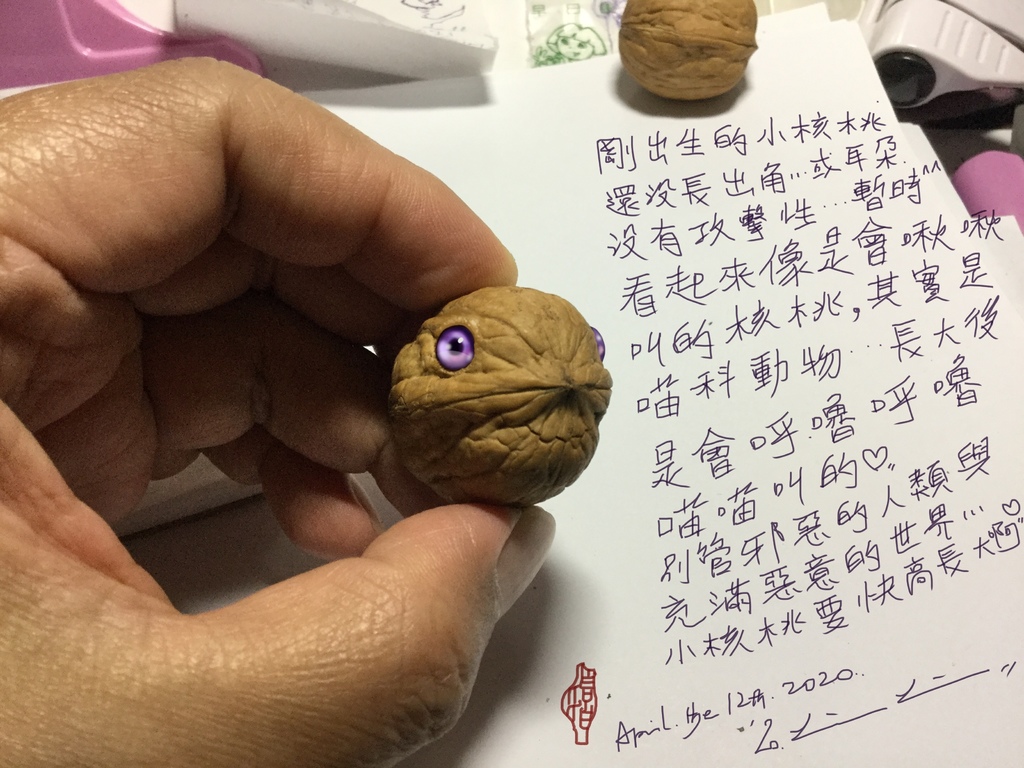 早日
剛出生的小核桃
還沒長出角...或耳朵
沒有攻擊性...暫時^^
看起來像是會啾啾
叫的核桃,其實是
喵科動物...長大後
是會呼嚕呼嚕
喵喵叫的♡"
別管邪惡的人類與
充滿惡意的世界...♡
小核桃要快高長大啊"
April. the 12th. 2020.